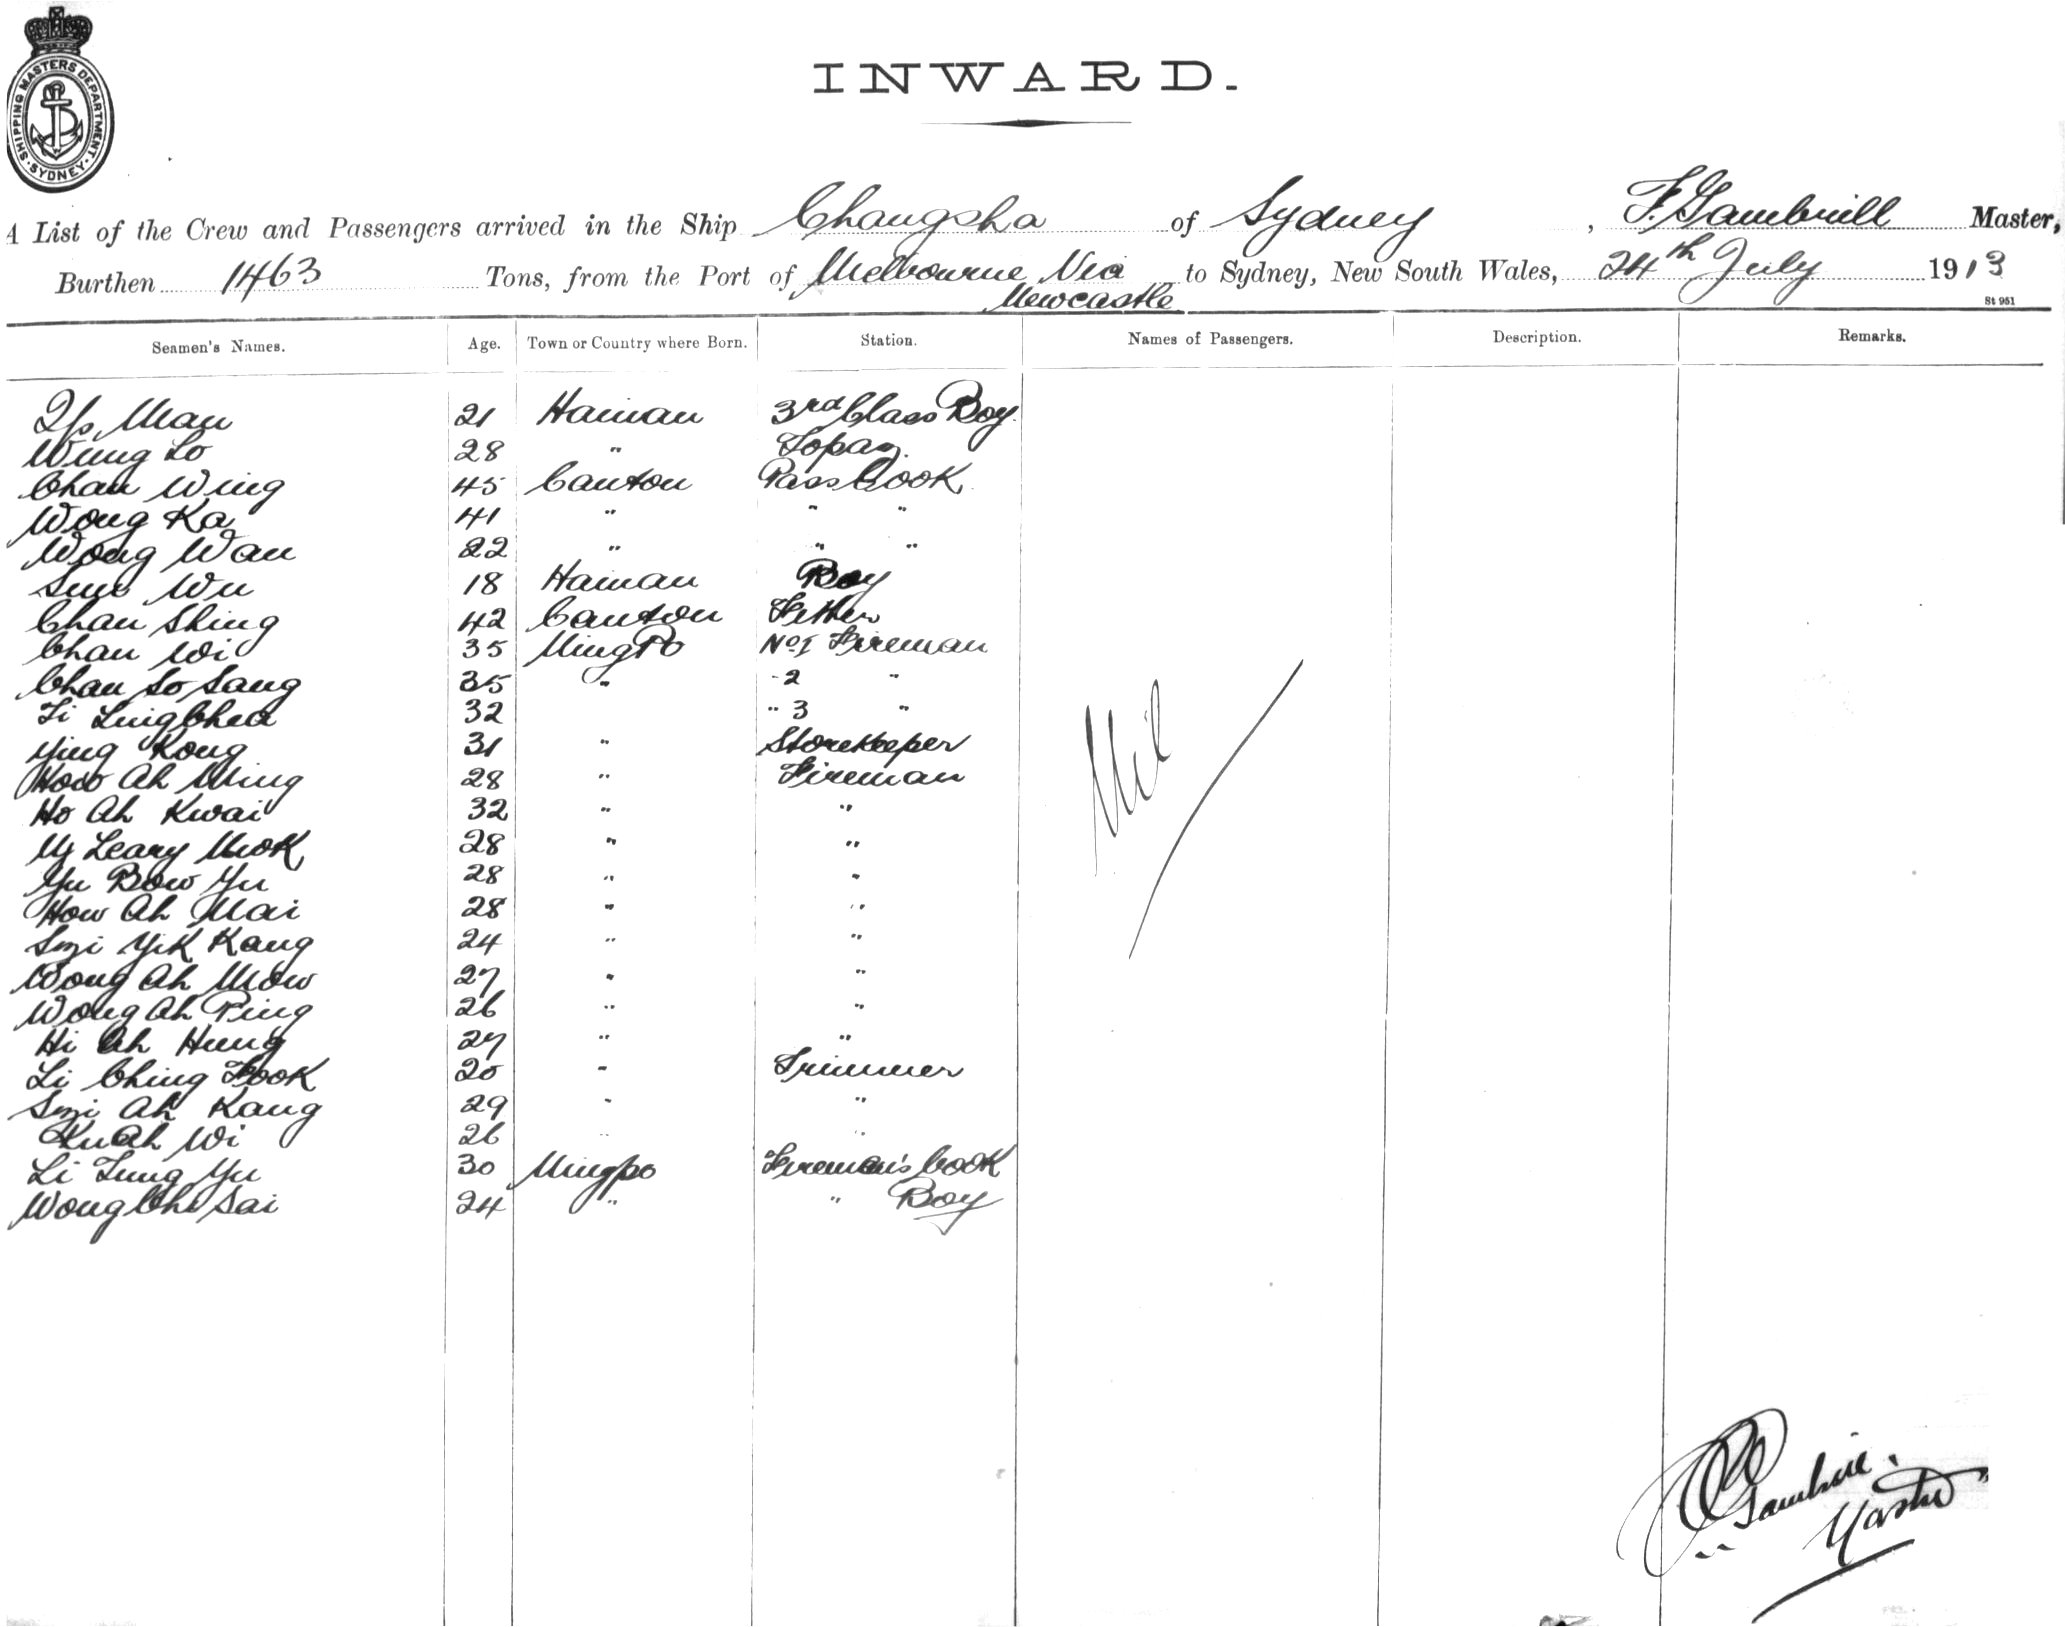 SHIPPING MASTERS DEPARTMENT. SYDNEY
INWARD.
A List of the Crew and Passengers arrived in the Ship Changsha of Sydney, F. Gambrill Master,
Burthen 1463 Tons, from the Port of Melbourne Via Newcastle to Sydney, New South Wales, 24th July 1913
St 951
Seamen's Names. Age. Town or Country where Born. Station. Names of Passengers. Description. Remarks.
Man 21 Hainan 3rd Class Boy
Wung Lo 28 " Topaz
Chan Wing 45 Canton Pass Cook
Wong Ka 41 " " "
Wong Wan 22 " " "
Wu 18 Hainan Boy
Chan Shing 42 Canton Fitter
Chan Wi 35 NingPo No 1 Fireman
Chan So Sang 35 " " 2 "
Li Ling Chea 32 " 3 "
Ning Kong 31 " Storekeeper
How Ah Ming 28 " Fireman
Ho Ah Kwai 32 " "
Leary Mok 28 " "
Yu Bow Yu 28 " "
How Ah Mai 28 " "
Yik Kang 24 " "
Wong Ah Mow 27 " "
Wong Ah Ping 26 " "
Hi Ah Hung 27 " "
Li Ching Fook 20 " Trimmer
Ah Kang 29 " "
Ku Ah Wi 26 " "
Li Tung Yu 30 Ningpo Fireman's Cook
Wong Chi Sai 24 " " Boy
Nil
Gambrill.
Master